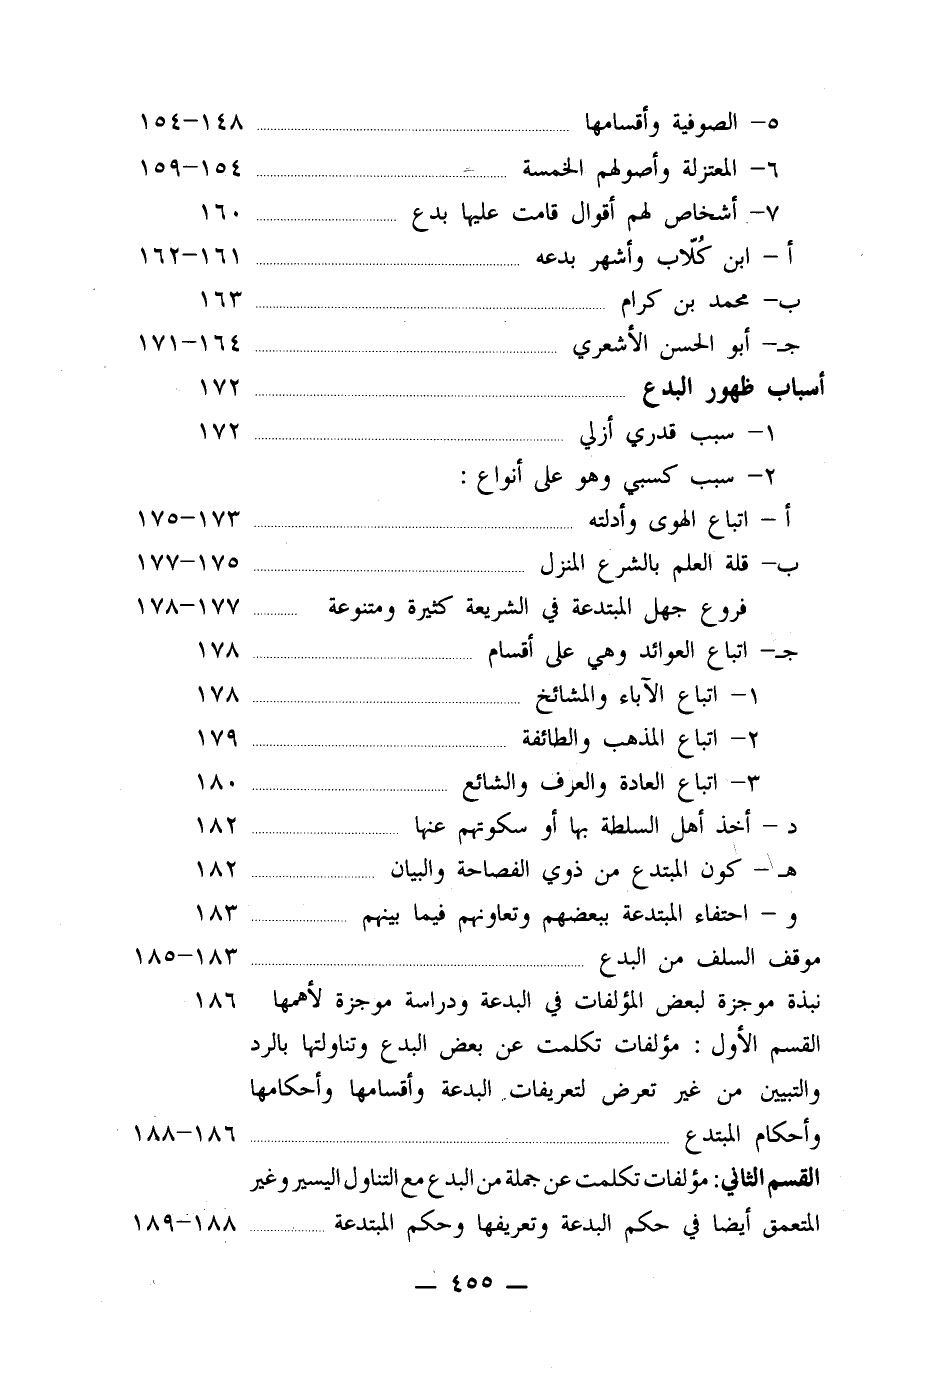 ٥- الصوفية وأقسامها ........ ١٤٨-١٥٤
٦- المعتزلة وأصولهم الخمسة ........ ١٥٤-١٥٩
٧- أشخاص لهم أقوال قامت عليها بدع ........ ١٦٠
أ - ابن كُلّاب وأشهر بدعه ........ ١٦١-١٦٢
ب- محمد بن كرام ........ ١٦٣
جـ- أبو الحسن الأشعري ........ ١٦٤-١٧١
أسباب ظهور البدع ........ ١٧٢
١- سبب قدري أزلي ........ ١٧٢
٢- سبب كسبي وهو على أنواع :
أ - اتباع الهوى وأدلته ........ ١٧٣-١٧٥
ب- قلة العلم بالشرع المنزل ........ ١٧٥-١٧٧
فروع جهل المبتدعة في الشريعة كثيرة ومتنوعة ........ ١٧٧-١٧٨
جـ- اتباع العوائد وهي على أقسام ........ ١٧٨
١- اتباع الآباء والمشائخ ........ ١٧٨
٢- اتباع المذهب والطائفة ........ ١٧٩
٣- اتباع العادة والعرف والشائع ........ ١٨٠
د - أخذ أهل السلطة بها أو سكوتهم عنها ........ ١٨٢
هـ- كون المبتدع من ذوي الفصاحة والبيان ........ ١٨٢
و - احتفاء المبتدعة ببعضهم وتعاونهم فيما بينهم ........ ١٨٣
موقف السلف من البدع ........ ١٨٣-١٨٥
نبذة موجزة لبعض المؤلفات في البدعة ودراسة موجزة لأهمها ١٨٦
القسم الأول : مؤلفات تكلمت عن بعض البدع وتناولتها بالرد
والتبيين من غير تعرض لتعريفات البدعة وأقسامها وأحكامها
وأحكام المبتدع ........ ١٨٦-١٨٨
القسم الثاني: مؤلفات تكلمت عن جملة من البدع مع التناول اليسير وغير
المتعمق أيضا في حكم البدعة وتعريفها وحكم المبتدعة ........ ١٨٨-١٨٩
— ٤٥٥ —